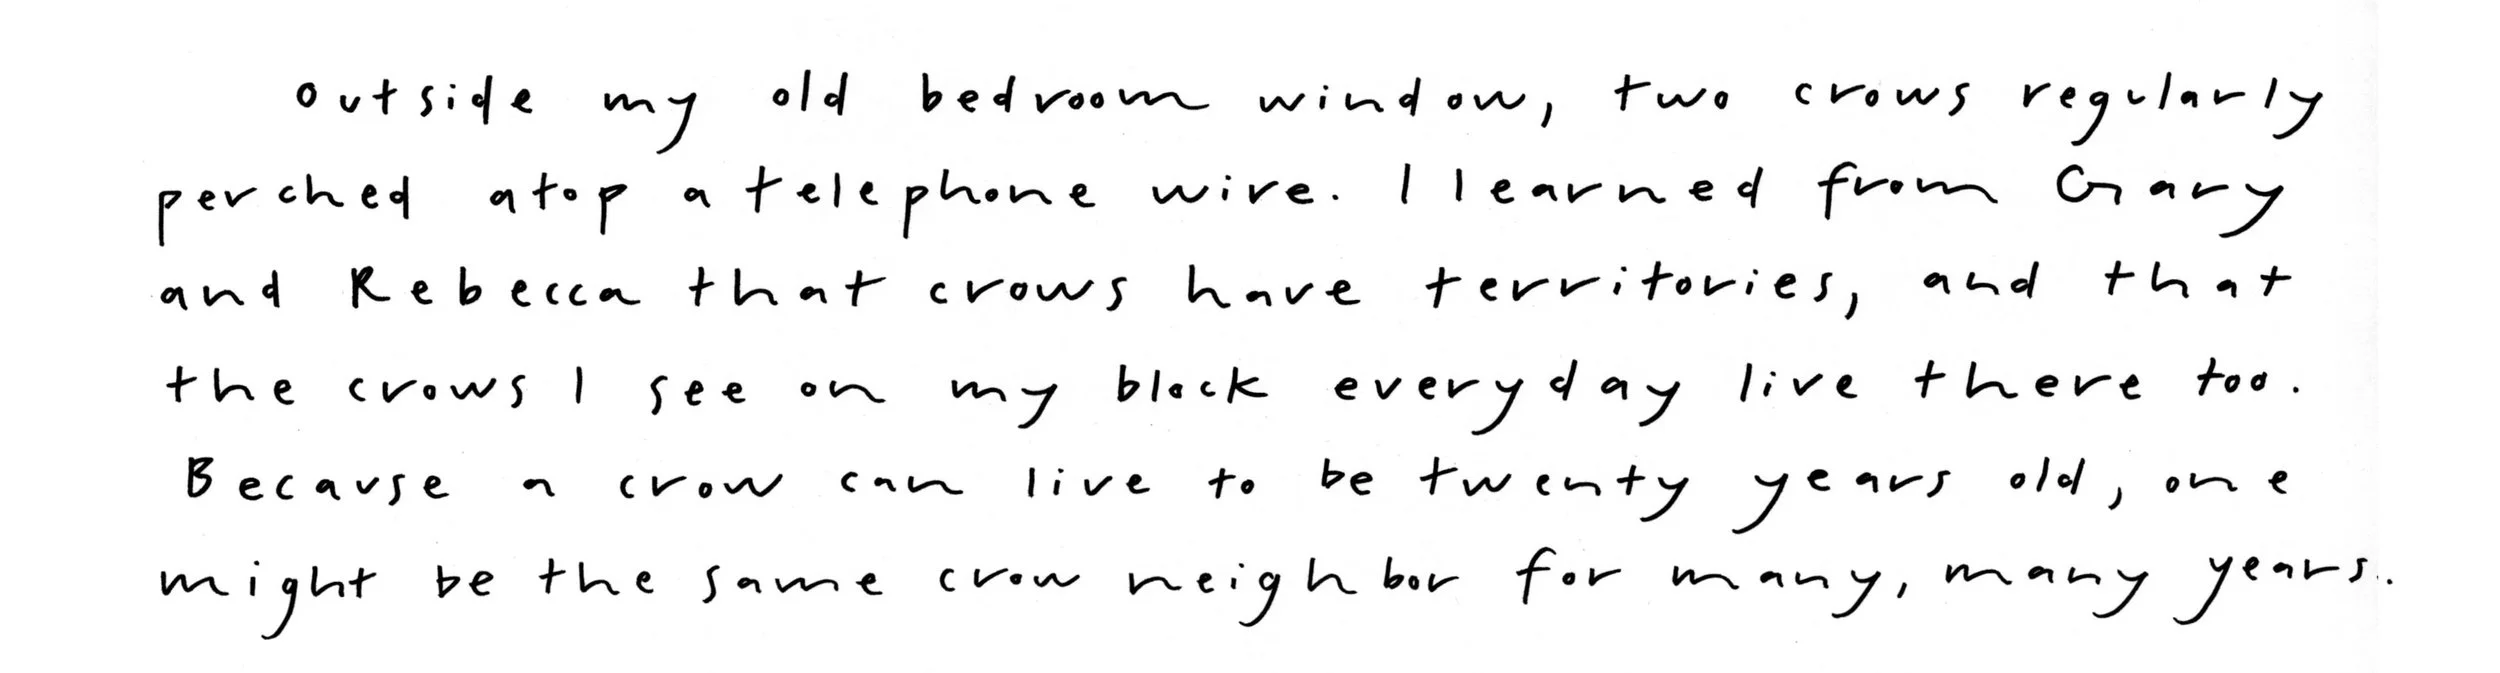 Outside my old bedroom window, two crows regularly
perched atop a telephone wire. I learned from Gary
and Rebecca that crows have territories, and that
the crows I see on my block everyday live there too.
Because a crow can live to be twenty years old, one
might be the same crow neighbor for many, many years.